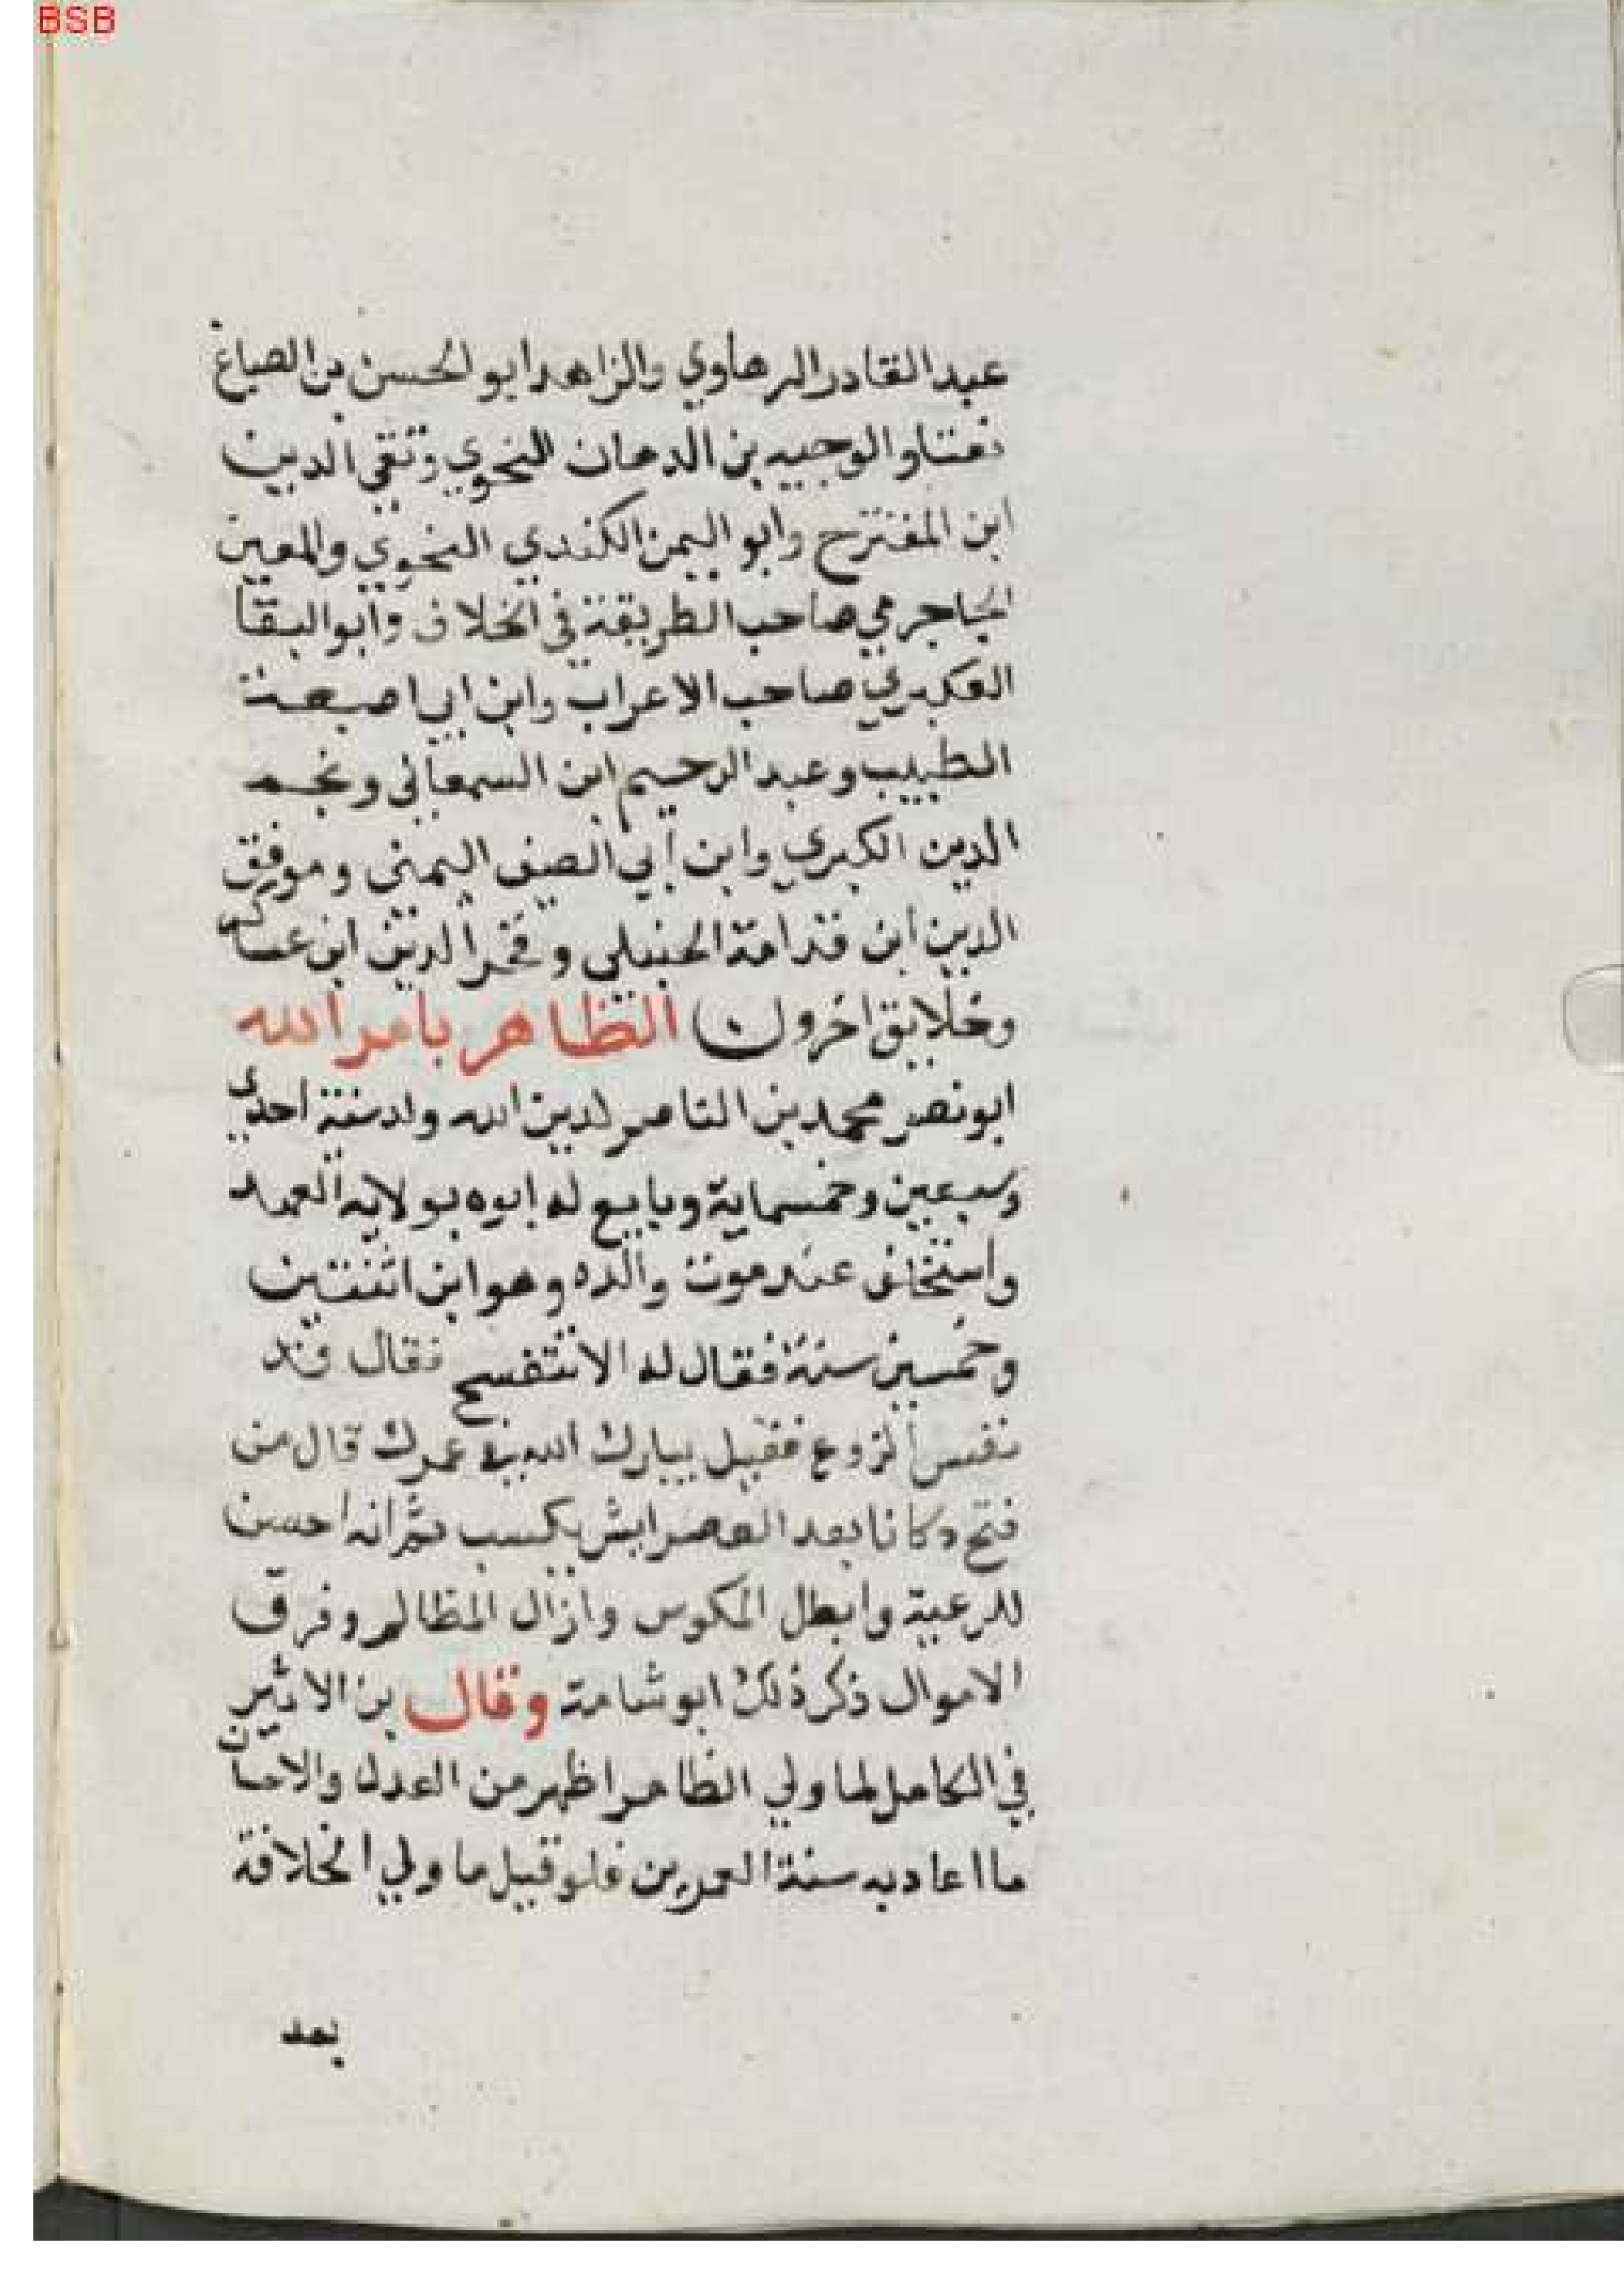 BSB
عبد القادر الرهاوي والزاهد ابو الحسن بن الصباغ
نفتنا والوجيه بن الدهان النحوي وتقي الدين
ابن المقترح وابو اليمن الكندي النحوي والمعين
الجاجرمي صاحب الطريقة في الخلاف وابو البقا
العكبري صاحب الاعراب وابن ابي اصيبعة
الطبيب وعبد الرحيم ابن السمعاني ونجم
الدين الكبري وابن أبي الصيف اليمني وموفق
الدين ابن قدامة الحنبلي وفخر الدين ابن عساكر
وخلايق اخرون الظاهر بامر الله
ابو نصر محمد بن الناصر لدين الله ولد سنة احدي
وسبعين وخمسماية وبايع له ابوه بولاية العهد
واستخلف عند موت والده وهو ابن اثنتين
وخمسين سنة فقال له الا تتفسح فقال قد
نفس الزرع فقيل يبارك الله في عمرك قال من
فتح دكانا بعد العصر ايش يكسب ثم انه احسن
للرعية وابطل المكوس وازال المظالم وفرق
الاموال ذكر ذلك ابو شامة وقال بن الاثير
في الكامل لما ولي الظاهر اظهر من العدل والاحسان
ما اعاد به سنة العمرين فلو قيل ما ولي الخلافة
بعد